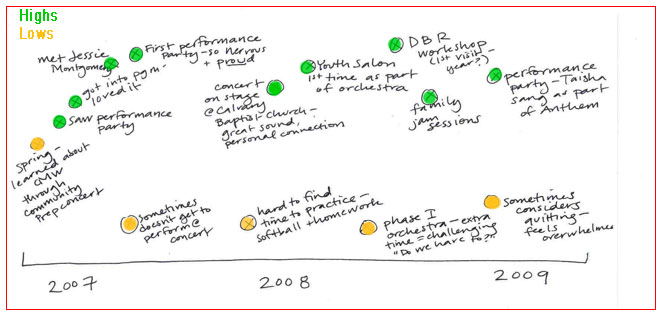 Highs
Lows
met Jessie
Montgomery
First performance
party - so nervous
+ proud
got into pgm -
loved it
saw performance
party
Spring -
learned about
CMW
through
community
Prep concert
concert
on stage
@ Calvary
Baptist Church -
great sound,
personal connection
Youth Salon
1st time as part
of orchestra
DBR
workshop
(1st visit -
year?)
family
jam
sessions
performance
party - Taisha
sang as part
of Anthem
sometimes
doesn't get to
perform @
concert
hard to find
time to practice -
softball + homework
phase I
orchestra - extra
time = challenging
"Do we have to??"
sometimes
considers
quitting -
feels
overwhelmed
2007
2008
2009